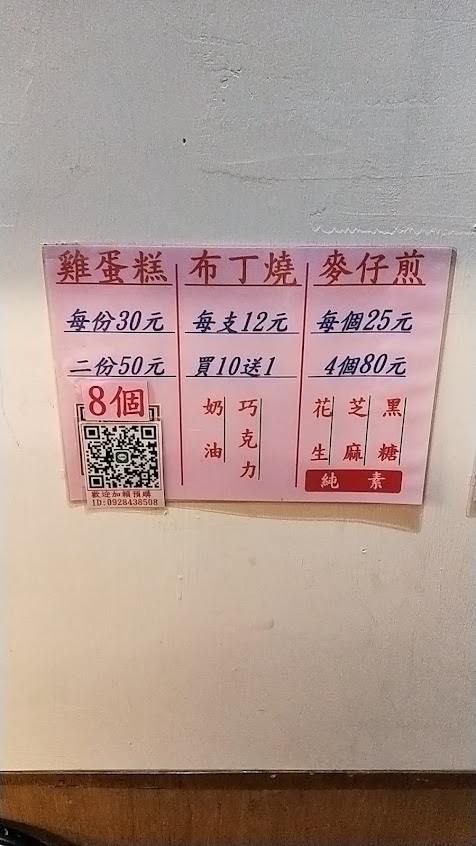 雞蛋糕
每份30元
二份50元
8個
歡迎加賴預購
ID:0928438508
布丁燒
每支12元
買10送1
奶油
巧克力
麥仔煎
每個25元
4個80元
花生
芝麻
黑糖
純素